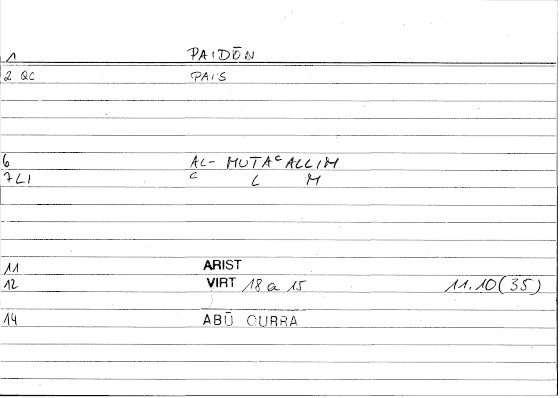 1 PAIDŌN
2 QC PAIS
6 AL-MUTAᶜALLIM
7 LI ᶜ L M
11 ARIST
12 VIRT 18 a 15 11.10(35)
14 ABŪ QURRA